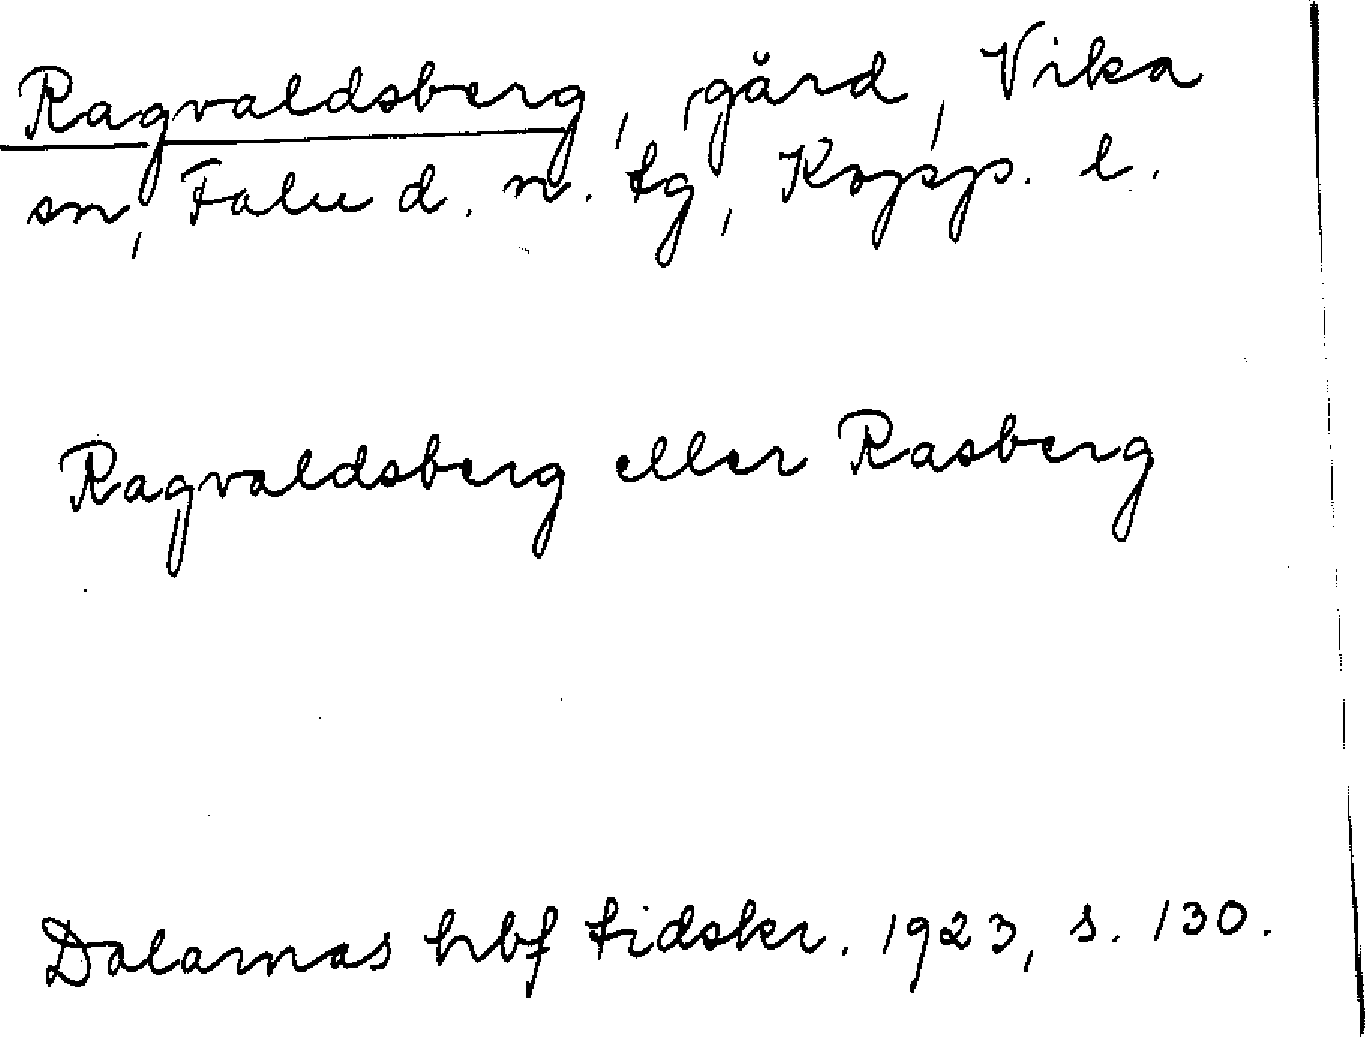 Ragvaldsberg, gård, Vika
sn, Falu d. n. tg, Kopp. l.
Ragvaldsberg eller Rasberg
Dalarnas hbf tidskr. 1923, s. 130.